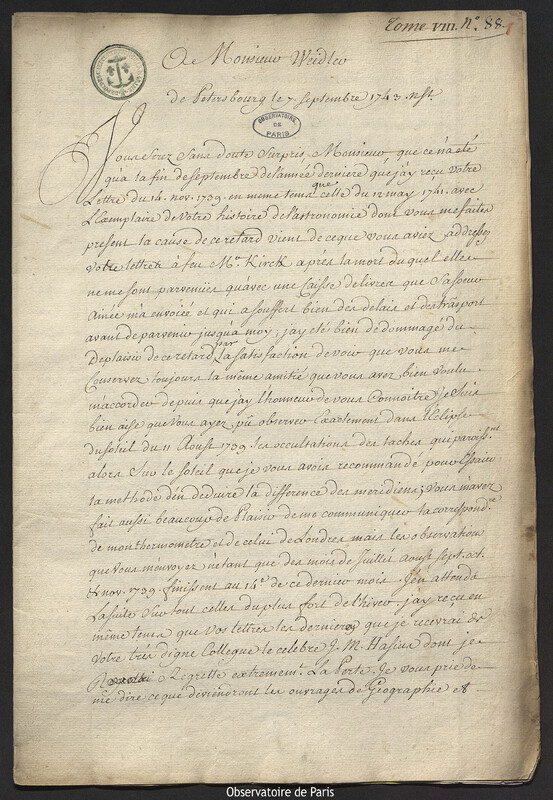 Tome VIII. N.º 88.
A Monsieur Weidler
de Petersbourg le 7. Septembre 1743. n. st.
OBSERVATOIRE
DE
PARIS
Vous serez sans doute surpris, Monsieur, que ce n'a été
qu'a la fin de septembre de l'année derniere que j'ay reçu votre
Lettre du 14. nov. 1739. en meme tems que celle du 12 may 1741. avec
L'Exemplaire de votre histoire de l'astronomie dont vous me faites
present la cause de ce retard vient de ce que vous aviez addressez
votre lettre à feu Mr. Kirck après la mort du quel elles
ne me sont parvenües qu'avec une Caisse de livres que sa soeur
Ainée m'a envoiée et qui a souffert bien des delais et des trāsport
avant de parvenir jusqu'a moy; j'ay été bien dedommagé du
Deplaisir de ce retard par la satisfaction de voir que vous me
Conservez toujours la même amitié que vous avez bien voulu
m'accorder depuis que j'ay l'honneur de vous Connoitre, je suis
bien aise que vous ayez pû observer Exactement dans l'Eclipse
du soleil du 11 Aoust 1739. les occultations des taches qui paroisst.
alors sur le soleil que je vous avois recommandé pour Essaier
la methode d'en deduire la difference des meridiens; vous m'avez
fait aussi beaucoup de Plaisir de me communiquer la correspondce.
de mon thermometre et de celui de Londres mais les observations
que vous m'envoyez n'étant que des mois de Juillet aoust sept. oct.
& nov. 1739. finissent au 14e. de ce dernier mois. J'en attends
La suite sur tout celles du plus fort de l'hiver. j'ay reçu en
même tems que vos lettres les dernieres que je recevrai de
Votre trés digne Collegue le celebre J. M. Hasius dont je
Regrette extrement. La Perte. Je vous prie de
me dire ce que deviendront les ouvrages de Geographie et
Observatoire de Paris